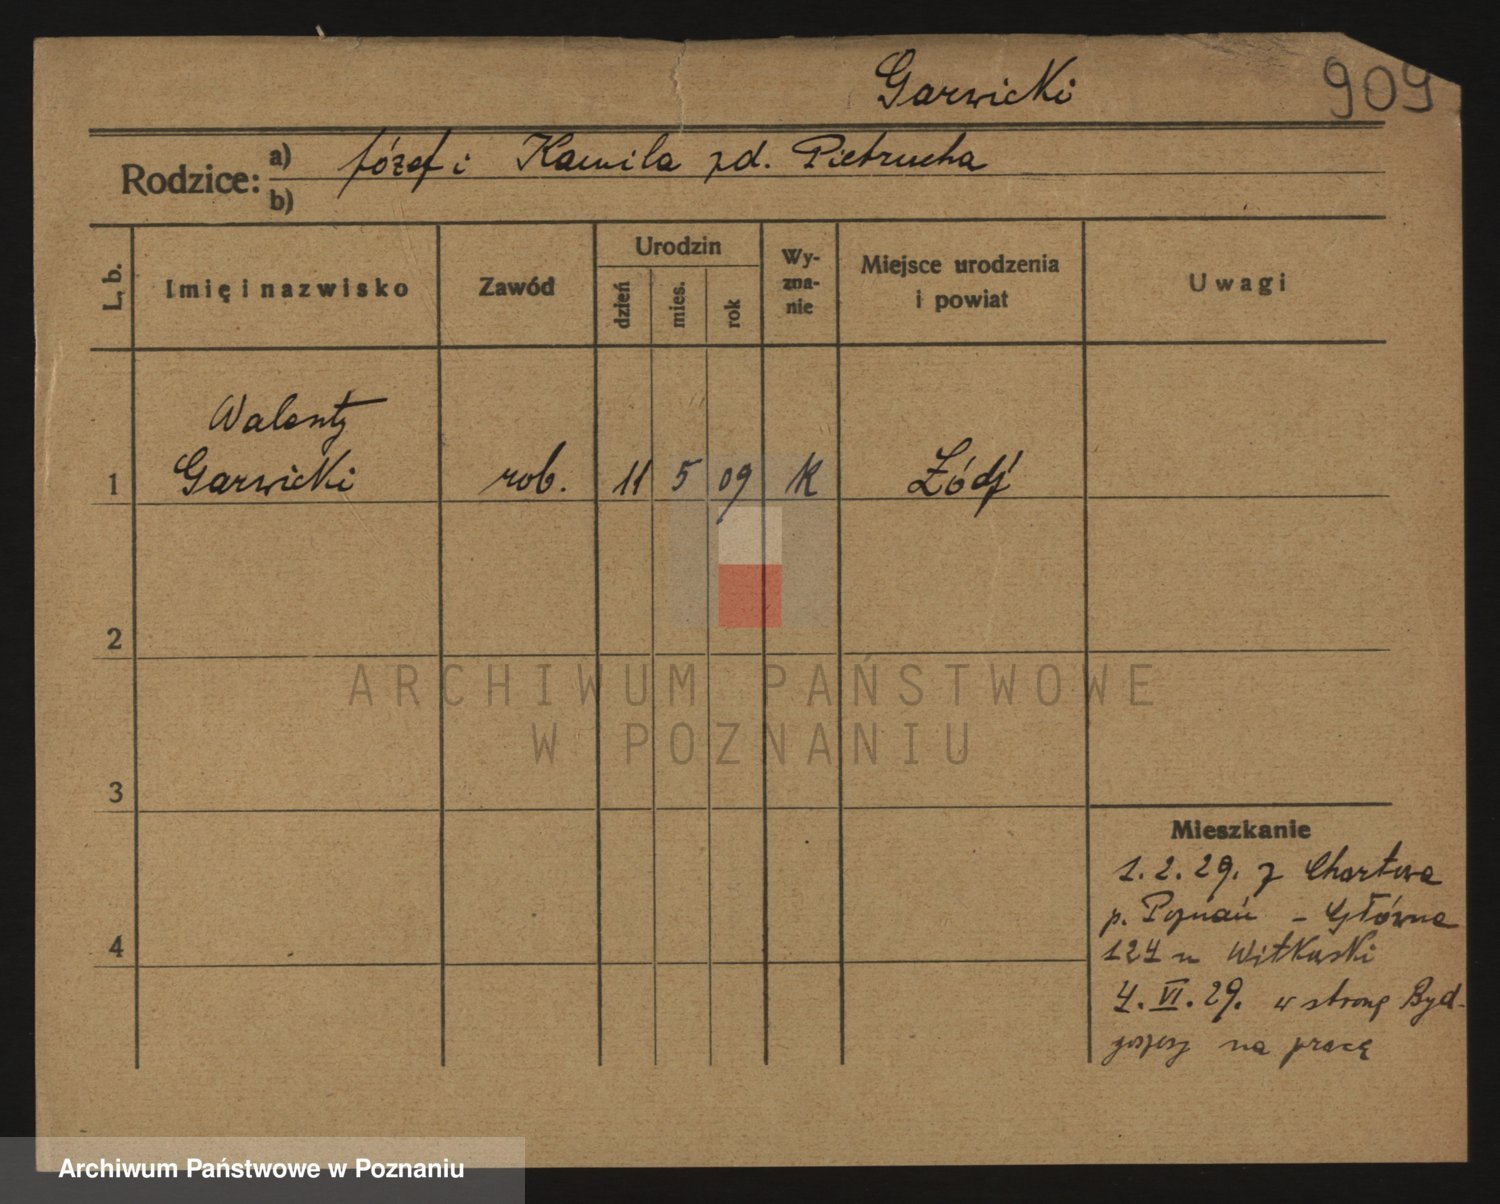 Garwicki
909
Rodzice: a) Józef i Kamila zd. Pietrucha
b)
L. b. Imię i nazwisko Zawód Urodzin dzień mies. rok Wy-zna-nie Miejsce urodzenia i powiat Uwagi
Walenty
1 Garwicki rob. 11 5 09 K Łódź
2
ARCHIWUM PAŃSTWOWE
W POZNANIU
3
Mieszkanie
1. 2. 29. z Chartowa
p. Poznań - Główna
4
u Witkowski
4. VI. 29. w stronę Byd-
goszczy na pracę
Archiwum Państwowe w Poznaniu